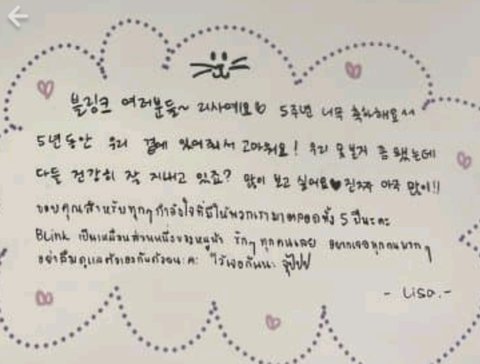 블링크 여러분들~ 리사예요♡ 5주년 너무 축하해요~~
5년동안 우리 곁에 있어줘서 고마워요! 우리 못본지 좀 됐는데
다들 건강히 잘 지내고 있죠? 많이 보고 싶어요♥ 진짜 아주 많이!!
ขอบคุณสำหรับทุกๆกำลังใจที่มีให้พวกเรามาตลอดทั้ง 5 ปีนะคะ
BLink เป็นเหมือนส่วนหนึ่งของหนูน้า รักๆทุกคนเลย อยากเจอทุกคนมากๆ
อย่าลืมดูแลตัวเองกันด้วยนะคะ ไว้เจอกันนะ จุ๊ปปป
- Lisa. -